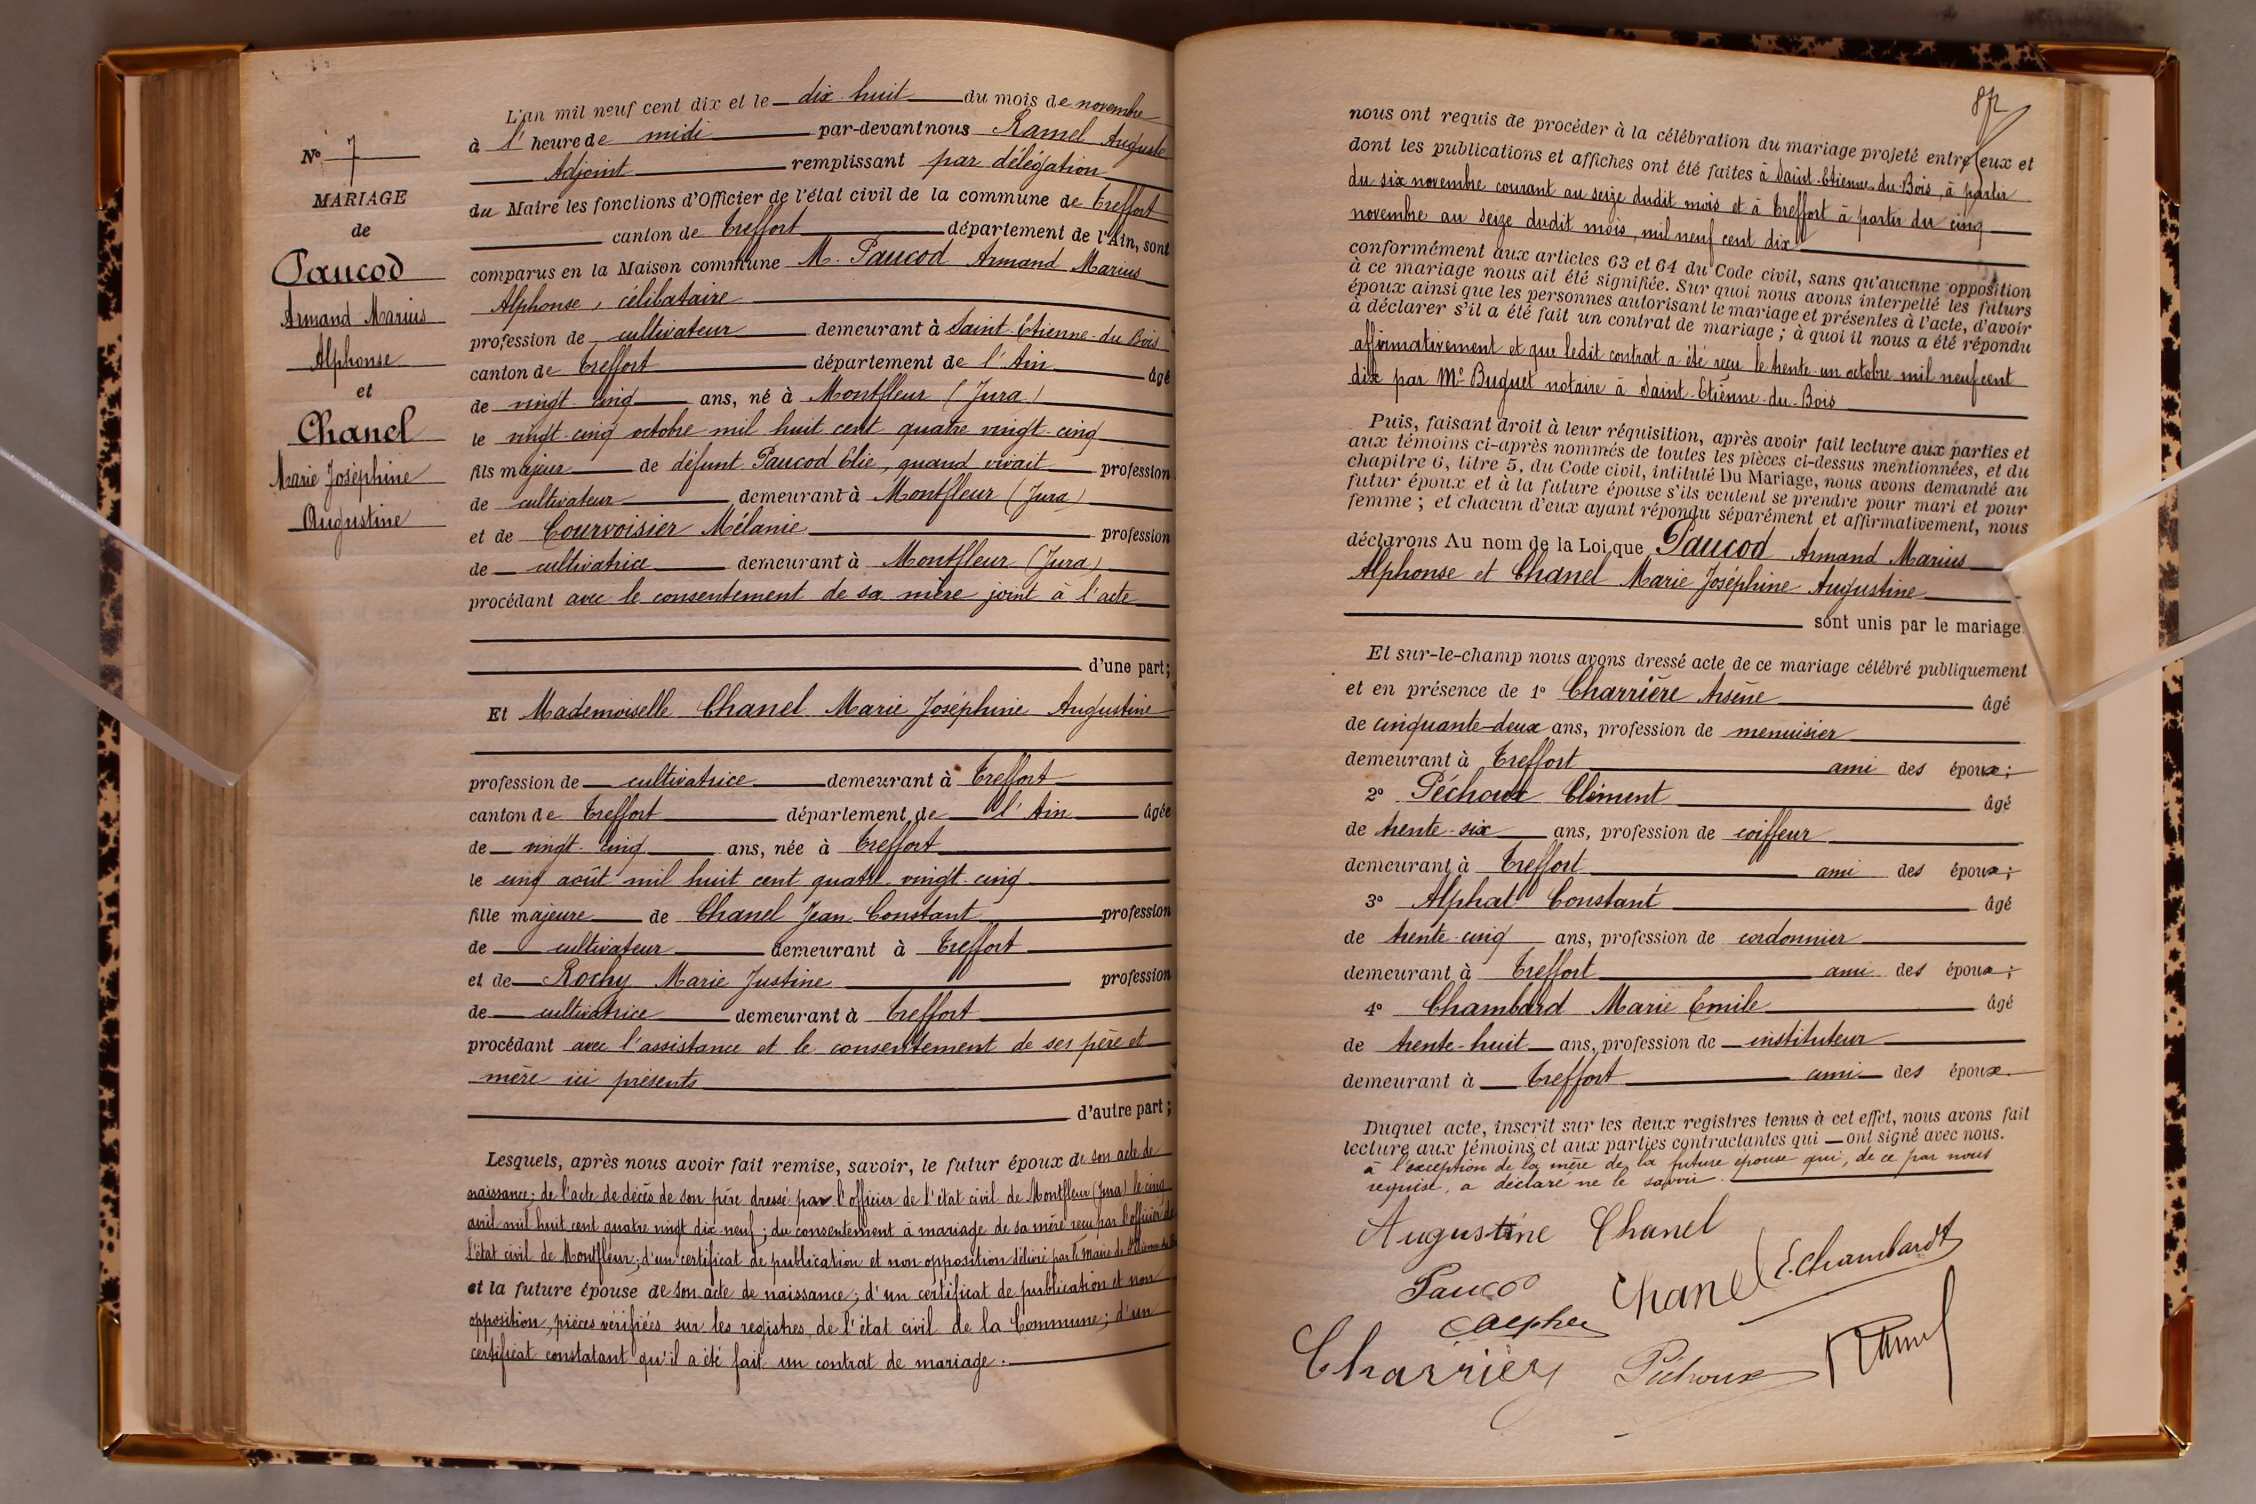 L'an mil neuf cent dix et le dix huit du mois de novembre
à l' heure de midi par-devant nous Ramel Auguste
Adjoint remplissant par délégation
du Maire les fonctions d'Officier de l'état civil de la commune de Treffort
canton de Treffort département de l'Ain, sont
comparus en la Maison commune M. Paucod Armand Marius
Alphonse, célibataire
profession de cultivateur demeurant à Saint-Etienne-du Bois
canton de Treffort département de l'Ain âgé
de vingt-cinq ans, né à Montfleur (Jura)
le vingt-cinq octobre mil huit cent quatre vingt-cinq
fils majeur de défunt Paucod Elie, quand vivait profession
de cultivateur demeurant à Montfleur (Jura)
et de Courvoisier Mélanie profession
de cultivatrice demeurant à Montfleur (Jura)
procédant avec le consentement de sa mère joint à l'acte
d'une part;
Et Mademoiselle Chanel Marie Joséphine Augustine
profession de cultivatrice demeurant à Treffort
canton de Treffort département de l'Ain âgée
de vingt-cinq ans, née à Treffort
le cinq août mil huit cent quatre-vingt-cinq
fille majeure de Chanel Jean Constant profession
de cultivateur demeurant à Treffort
et de Rochy Marie Justine profession
de cultivatrice demeurant à Treffort
procédant avec l'assistance et le consentement de ses père et
mère ici présents
d'autre part;
Lesquels, après nous avoir fait remise, savoir, le futur époux de son acte de
naissance; de l'acte de décès de son père dressé par l'officier de l'état civil de Montfleur (Jura) le cinq
avril mil huit cent quatre vingt dix neuf; du consentement à mariage de sa mère reçu par l'officier de
l'état civil de Montfleur; d'un certificat de publication et non opposition délivré par le Maire de St Etienne du Bois
et la future épouse de son acte de naissance; d'un certificat de publication et non
opposition, pièces vérifiées sur les registres de l'état civil de la Commune; d'un
certificat constatant qu'il a été fait un contrat de mariage.
N° 7
MARIAGE
de
Paucod
Armand Marius
Alphonse
et
Chanel
Marie Joséphine
Augustine
nous ont requis de procéder à la célébration du mariage projeté entre eux et
dont les publications et affiches ont été faites à Saint-Etienne-du-Bois, à partir
du six novembre courant au seize dudit mois et à Treffort à partir du cinq
novembre au seize dudit mois, mil neuf cent dix
conformément aux articles 63 et 64 du Code civil, sans qu'aucune opposition
à ce mariage nous ait été signifiée. Sur quoi nous avons interpellé les futurs
époux ainsi que les personnes autorisant le mariage et présentes à l'acte, d'avoir
à déclarer s'il a été fait un contrat de mariage; à quoi il nous a été répondu
affirmativement et que ledit contrat a été reçu le trente-un octobre mil neuf cent
dix par Me Buguet notaire à Saint-Etienne-du-Bois
Puis, faisant droit à leur réquisition, après avoir fait lecture aux parties et
aux témoins ci-après nommés de toutes les pièces ci-dessus mentionnées, et du
chapitre 6, titre 5, du Code civil, intitulé Du Mariage, nous avons demandé au
futur époux et à la future épouse s'ils veulent se prendre pour mari et pour
femme; et chacun d'eux ayant répondu séparément et affirmativement, nous
déclarons Au nom de la Loi que Paucod Armand Marius
Alphonse et Chanel Marie Joséphine Augustine
sont unis par le mariage.
Et sur-le-champ nous avons dressé acte de ce mariage célébré publiquement
et en présence de 1° Charrière Arsène âgé
de cinquante-deux ans, profession de menuisier
demeurant à Treffort ami des époux;
2° Péchoux Clément âgé
de trente-six ans, profession de coiffeur
demeurant à Treffort ami des époux;
3° Alphat Constant âgé
de trente-cinq ans, profession de cordonnier
demeurant à Treffort ami des époux;
4° Chambard Marie Emile âgé
de trente-huit ans, profession de instituteur
demeurant à Treffort ami des époux.
Duquel acte, inscrit sur les deux registres tenus à cet effet, nous avons fait
lecture aux témoins et aux parties contractantes qui ont signé avec nous.
à l'exception de la mère de la future épouse qui, de ce par nous
requise, a déclaré ne le savoir.
Augustine Chanel
Paucod Chanel E. Chambard
Charrière Péchoux Ramel